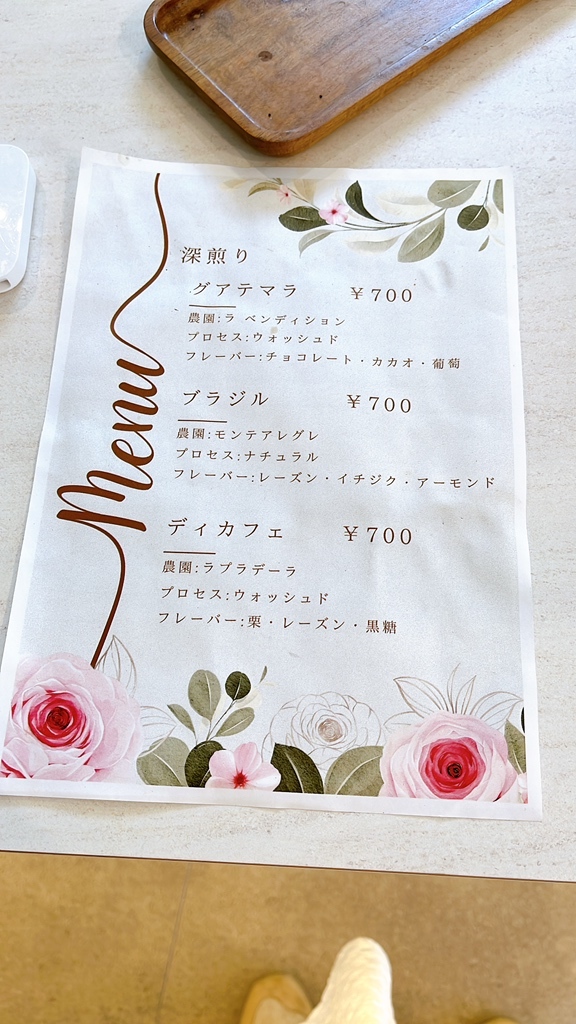 Menu
深煎り
グアテマラ ￥700
農園:ラ ベンディション
プロセス:ウォッシュド
フレーバー:チョコレート・カカオ・葡萄
ブラジル ￥700
農園:モンテアレグレ
プロセス:ナチュラル
フレーバー:レーズン・イチジク・アーモンド
ディカフェ ￥700
農園:ラプラデーラ
プロセス:ウォッシュド
フレーバー:栗・レーズン・黒糖